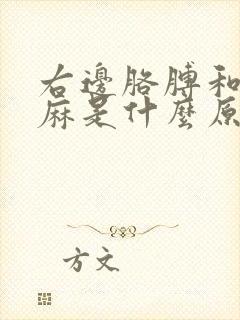 右邊胳膊和
麻是什麼原
方文